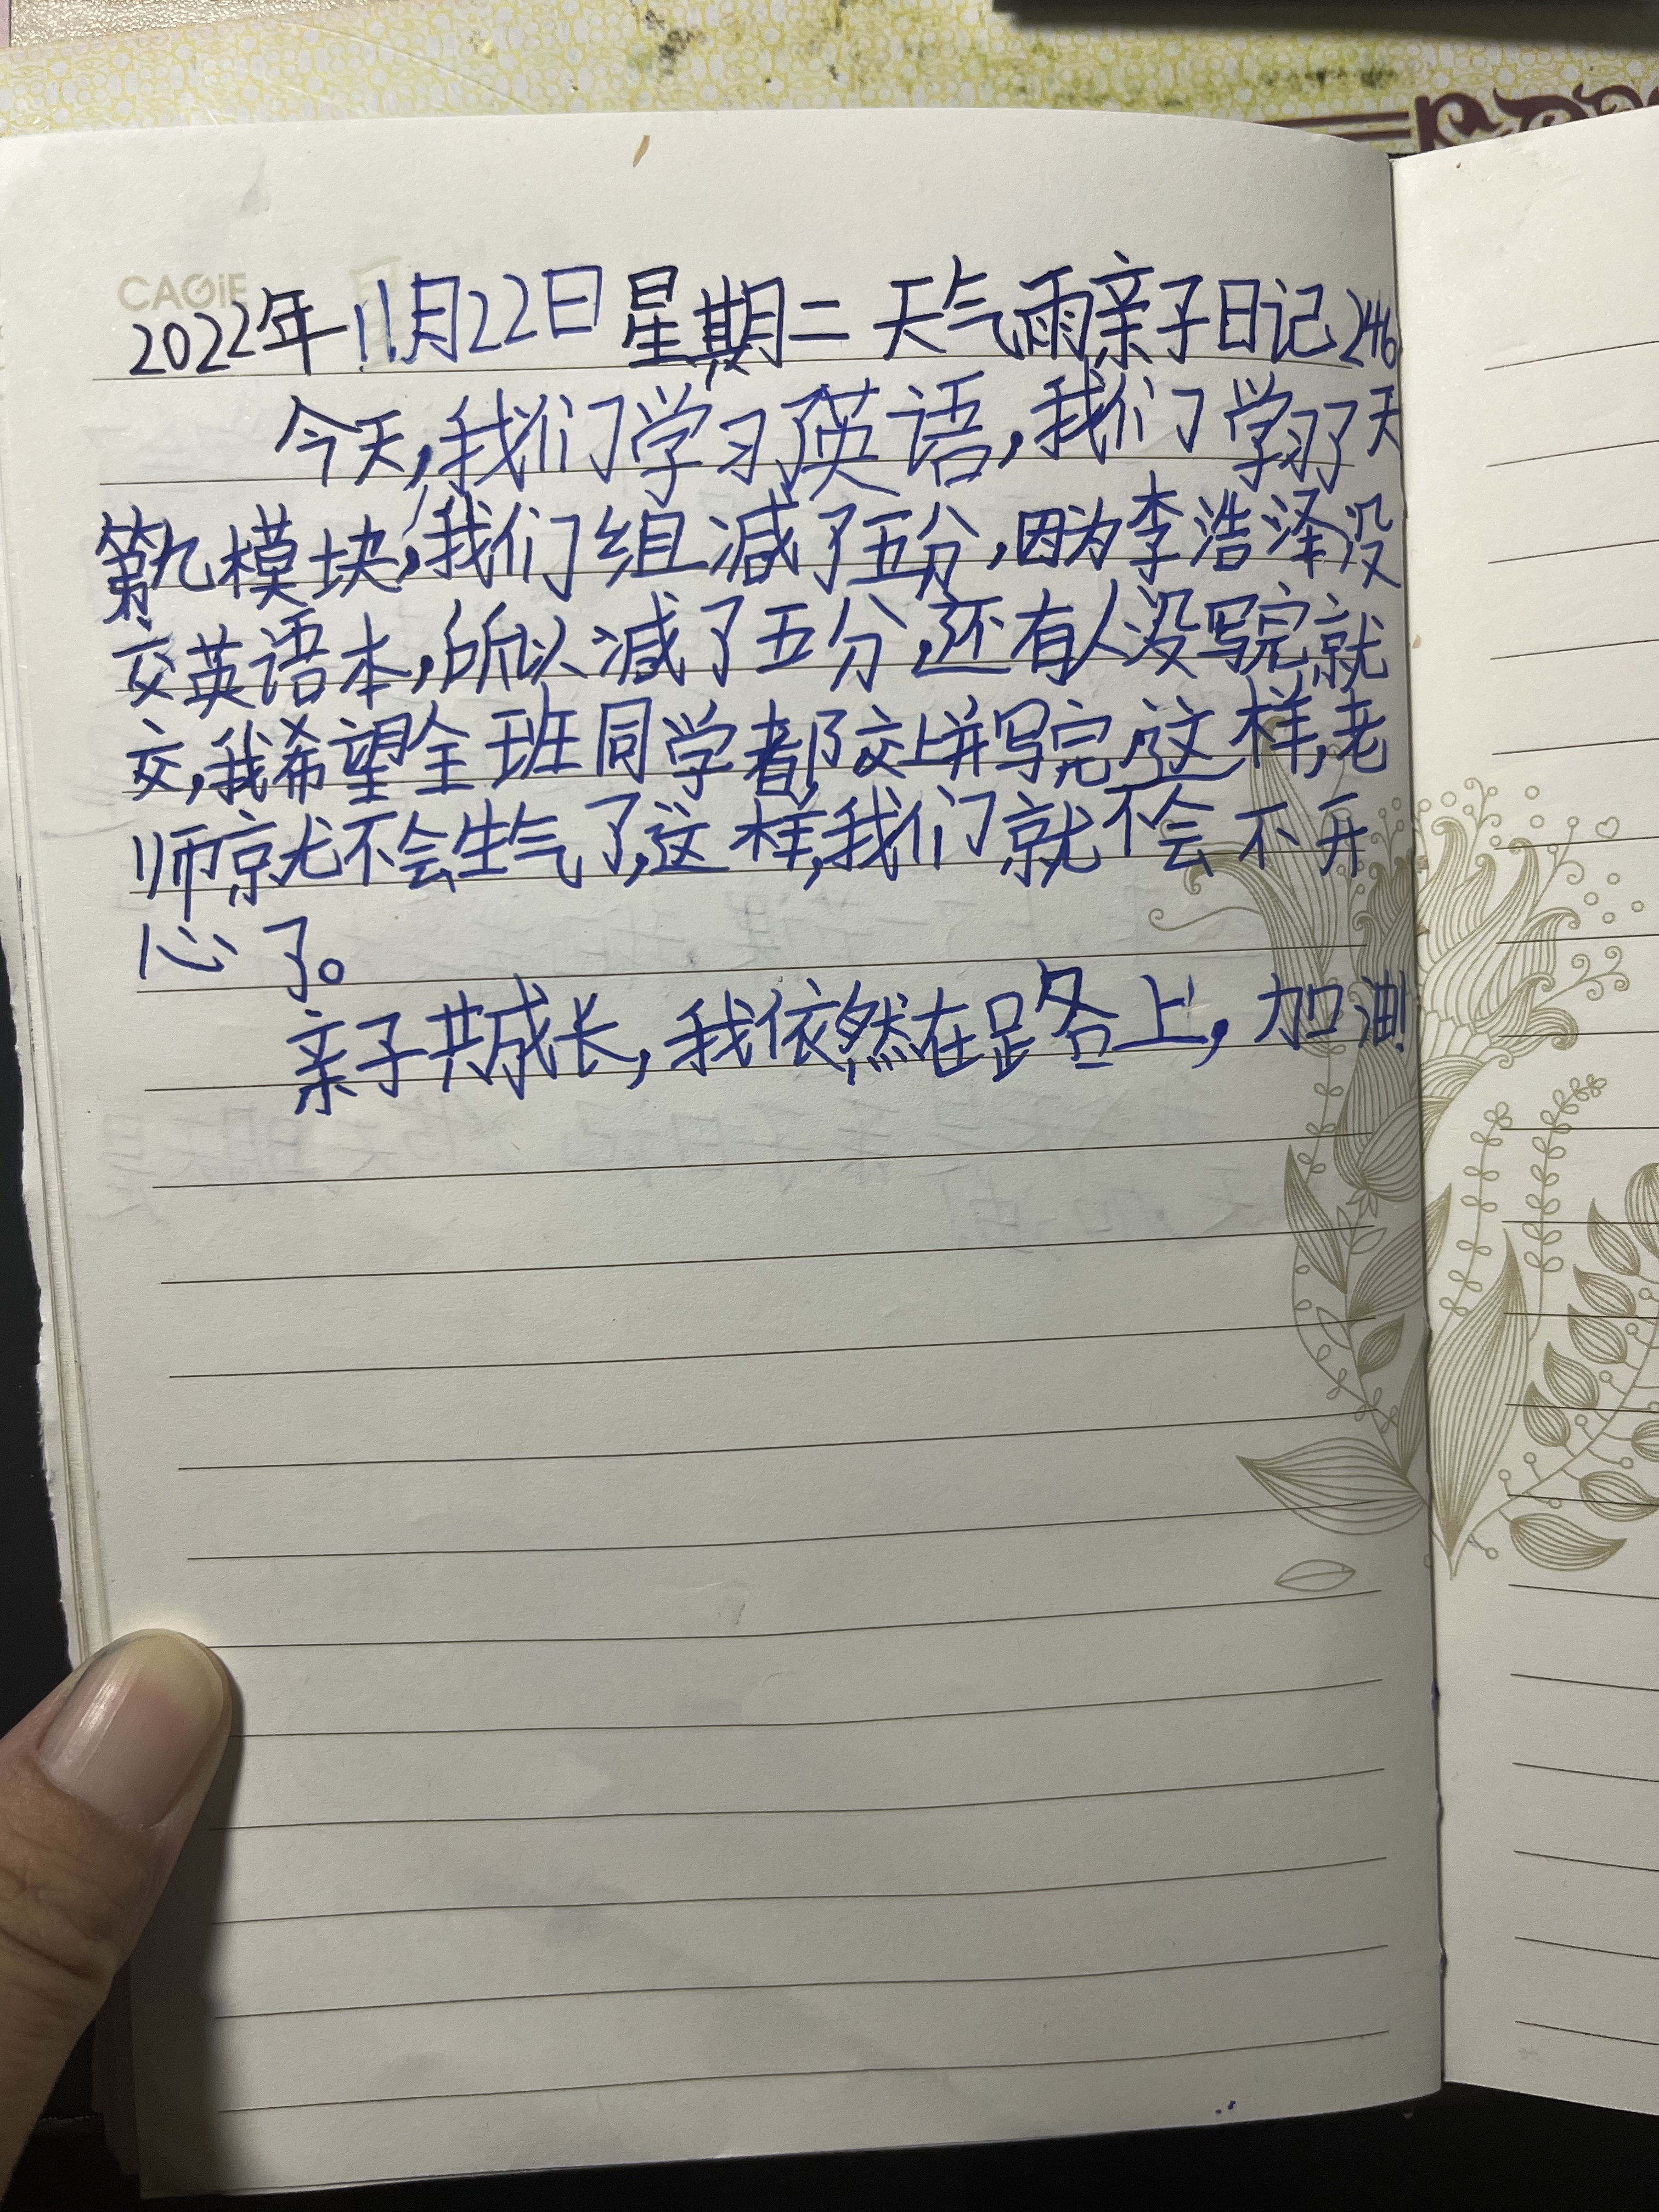 CAGiE
2022年11月22日星期二 天气雨亲子日记246
今天,我们学习了英语,我们学习了天
第九模块,我们组减了五分,因为李浩泽没
交英语本,所以减了五分,还有人没写完就
交,我希望全班同学都交上并写完,这样,老
师就不会生气了,这样,我们就不会不开
心了。
亲子共成长,我依然在路上,加油!